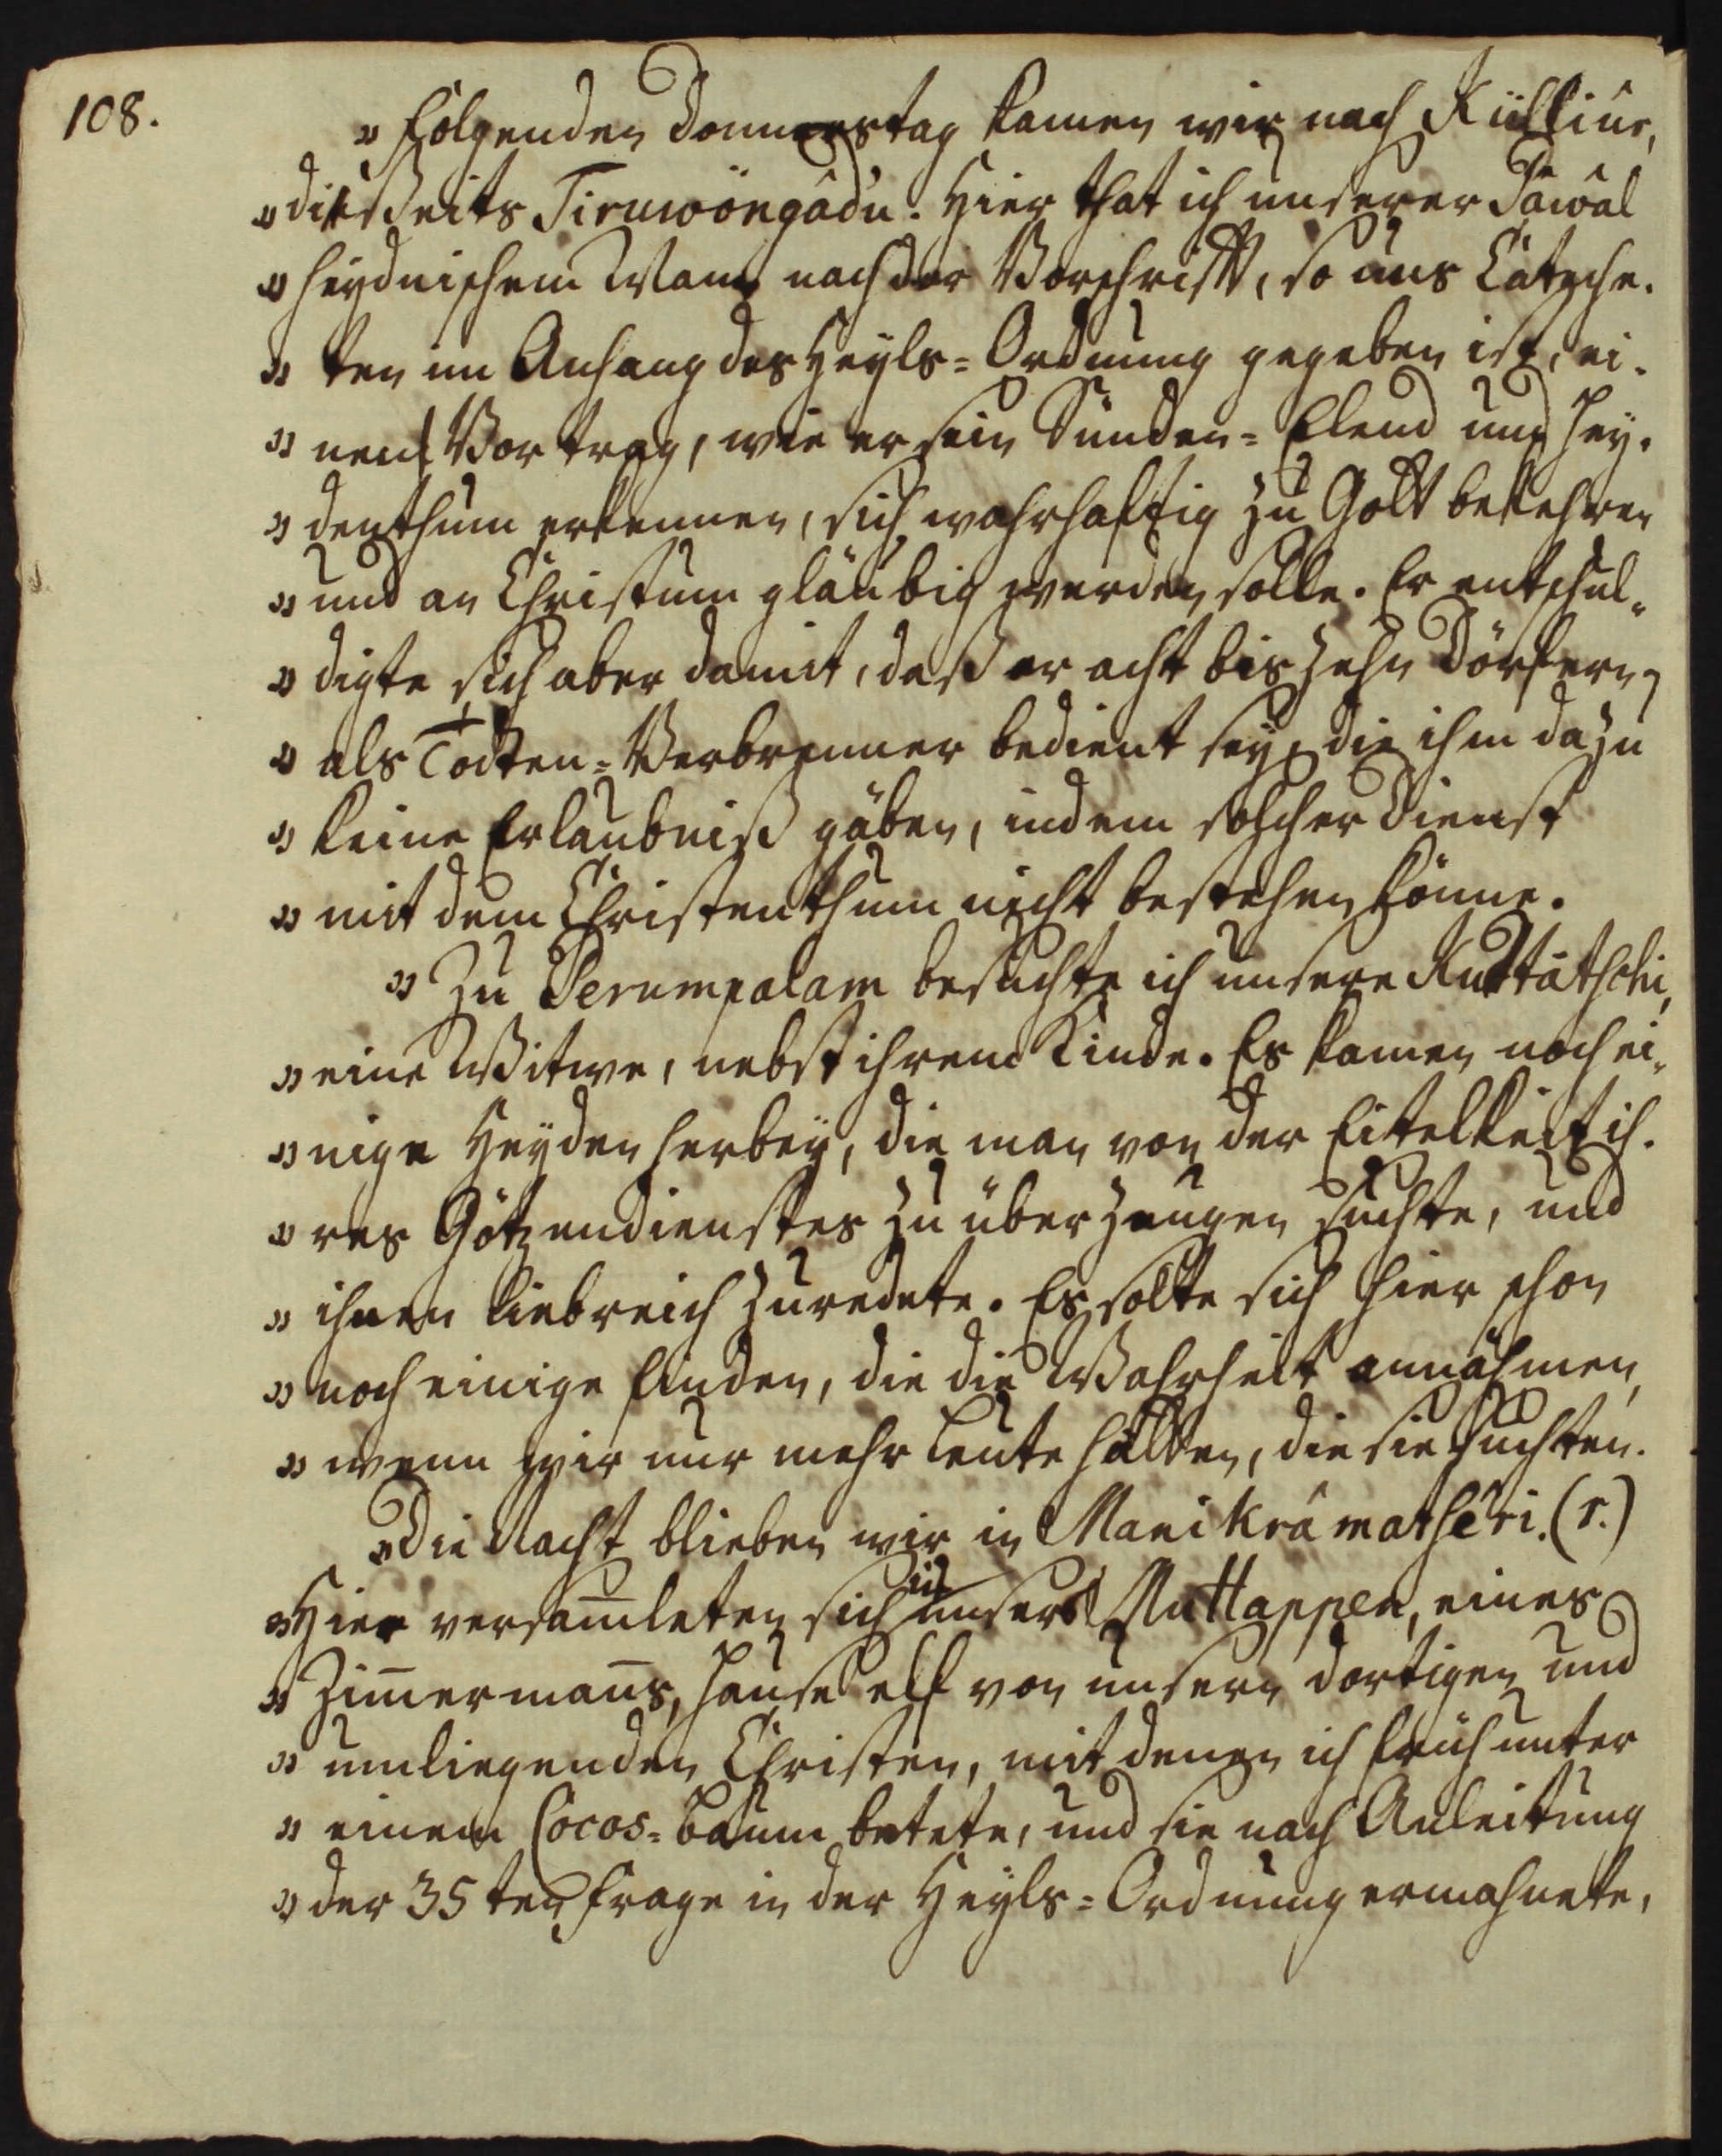 108.
„ Folgenden Donnerstag kamen wir nach Küllûr,
„ disseits Tiruwöngâdu. Hier that ich unserer Sawâl
„ heydnischem Mann nach der Vorschrifft, so uns Catche-
„ ten im Anhang der Heyls-Ordnung gegeben ist, ei-
„ nen Vortrag, wie er sein Sünden-Elend und Hey-
„ denthum erkennen, sich wahrhaftig zu Gott bekehren
„ und an Christum gläubig werden solle. Er entschul-
„ digte sich aber damit, daß er acht bis zehn Dörfern
„ als Todten-Verbrenner bedient sey, die ihm dazu
„ keine Erlaubniß gäben, indem solcher Dienst
„ mit dem Christenthum nicht bestehen könne.
„ Zu Perumpalam besuchte ich unsere Ruttâtschi,
„ eine Witwe, nebst ihrem Kinde. Es kamen noch ei-
„ nige Heyden herbey, die man von der Eitelkeit ih-
„ res Götzendienstes zu überzeugen suchte, und
„ ihnen liebreich zuredete. Es solte sich hier schon
„ noch einige finden, die die Wahrheit annähmen,
„ wenn wir nur mehr Leute hätten, die sie suchten.
„ Die Nacht blieben wir in Manikrâmathêri. (r.)
„ Hier versamleten sich in unsers Muttappen, eines
„ Zimmermanns, Hause elf von unsern dortigen und
„ umliegenden Christen, mit denen ich früh unter
„ einem Cocos-Baum betete, und sie nach Anleitung
„ der 35ten Frage in der Heyls-Ordnung ermahnete,